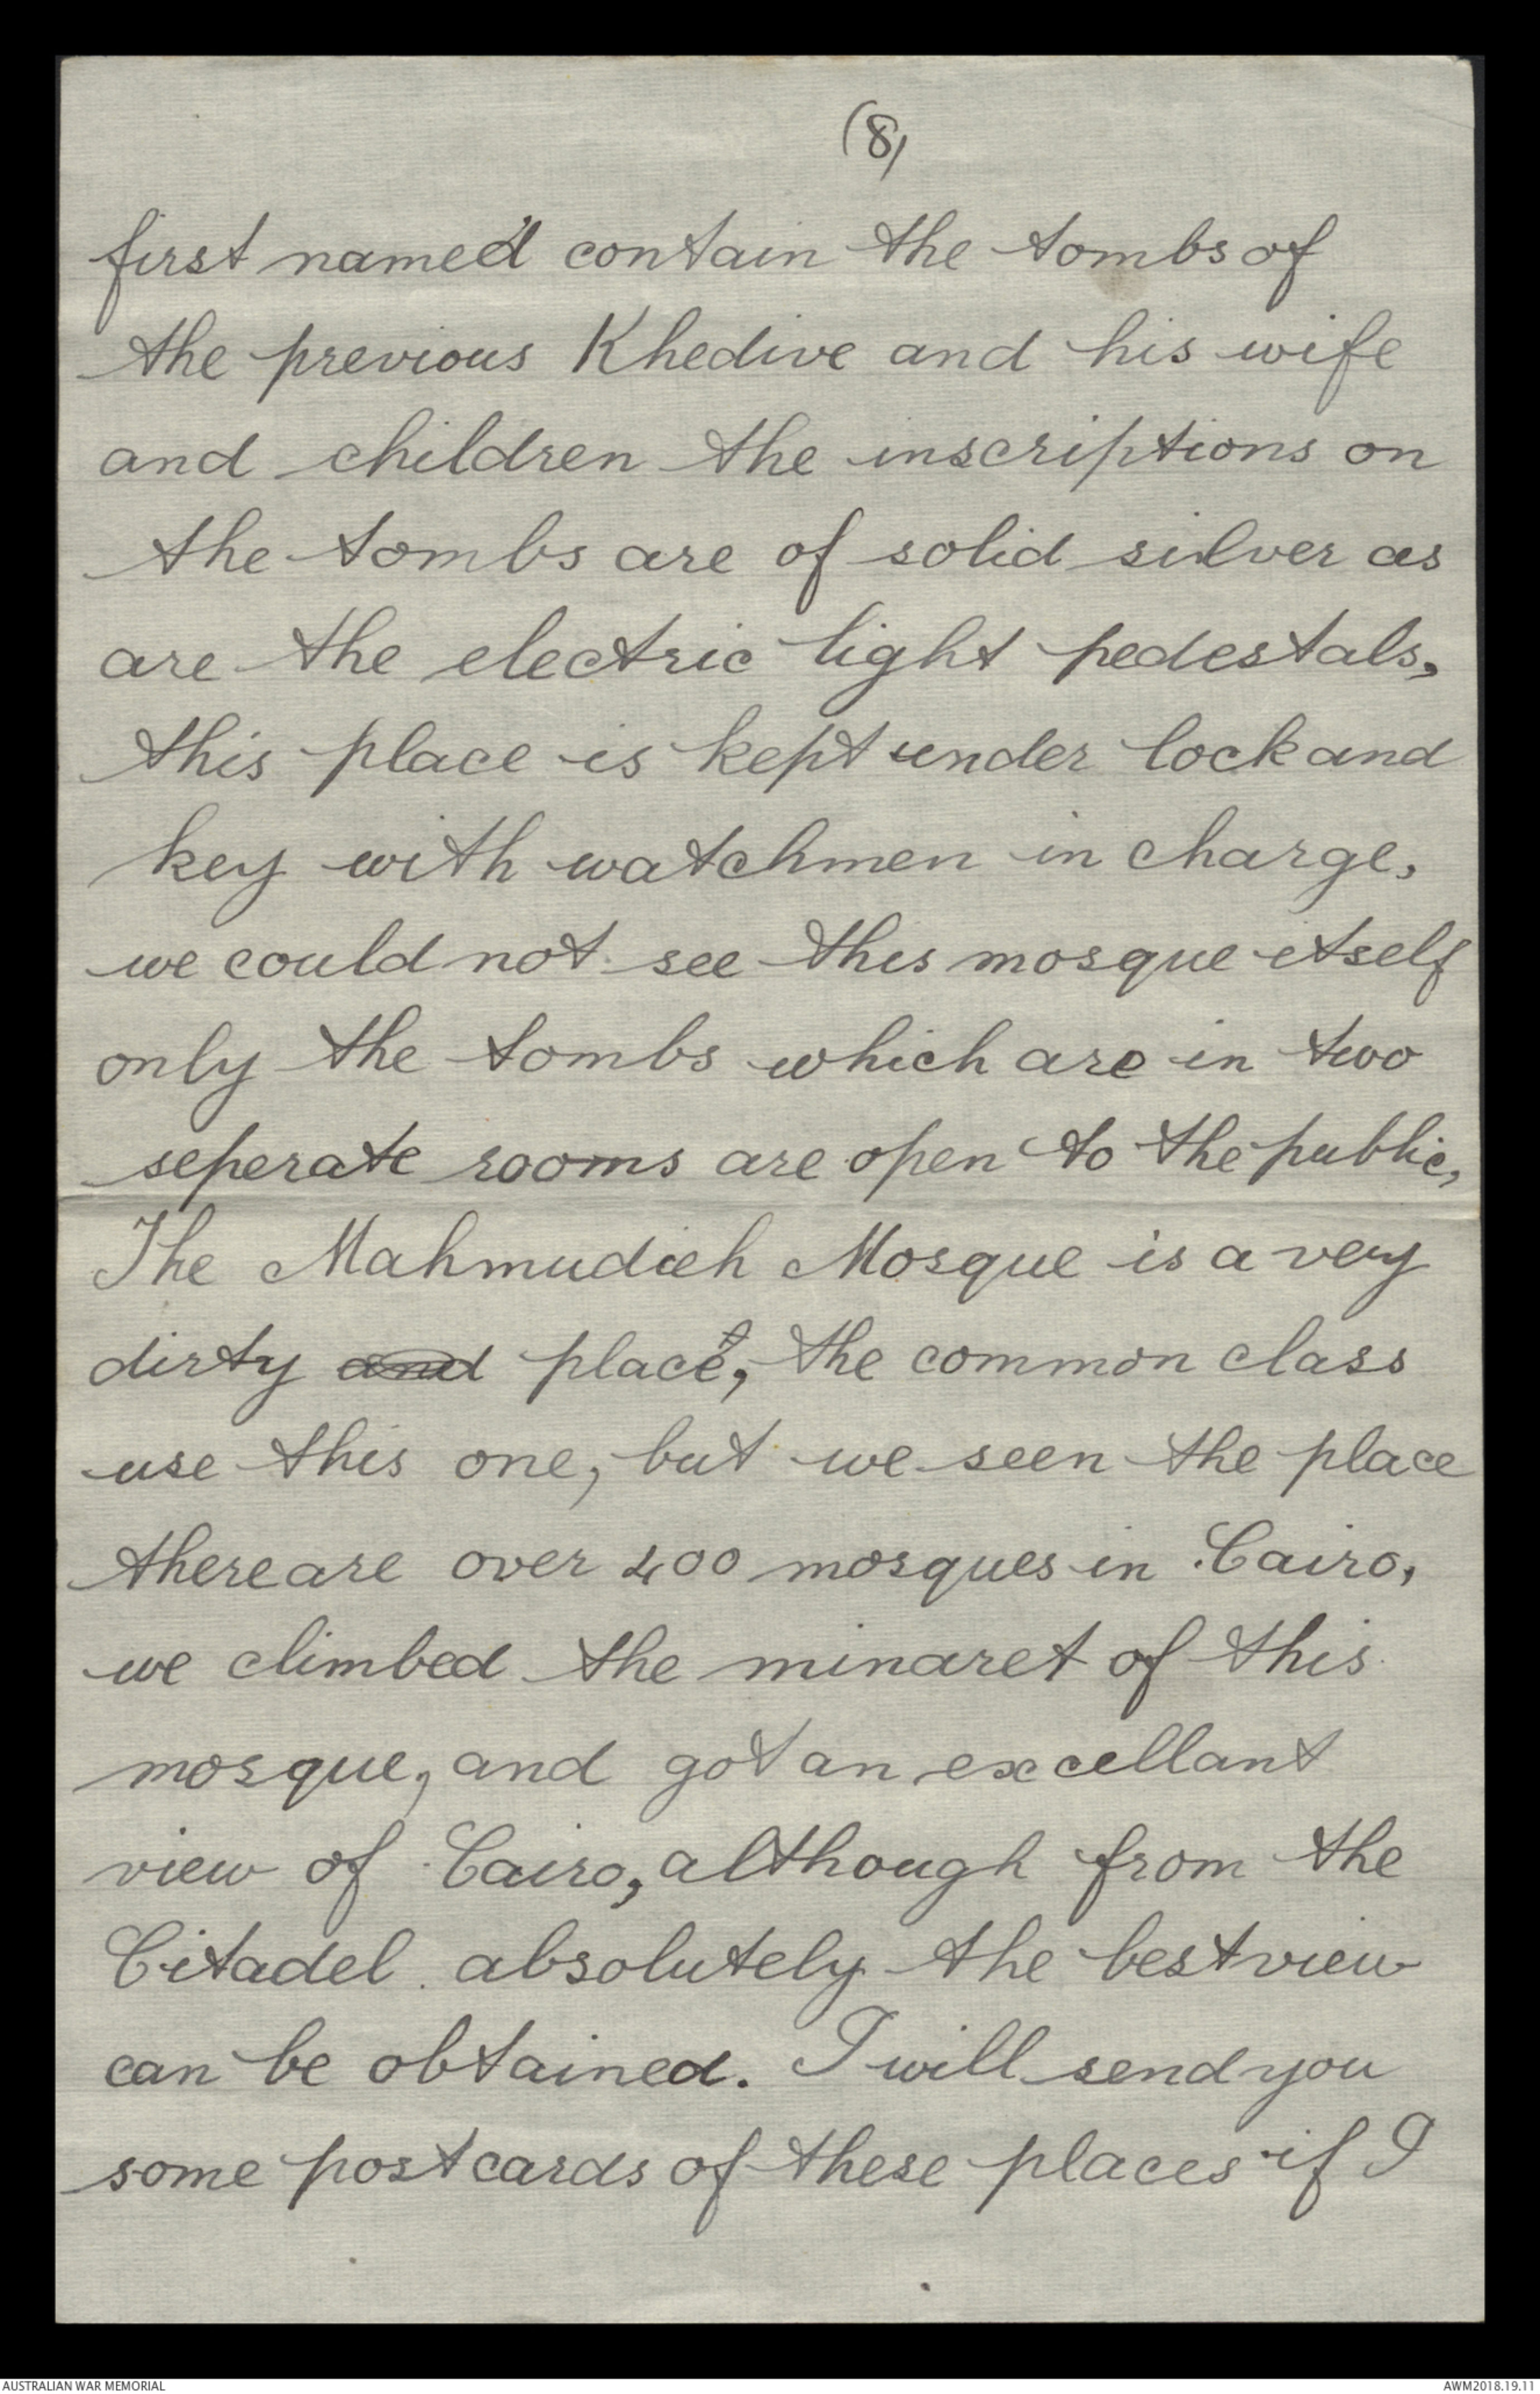 (8)
first named contain the tombs of
the previous Khedive and his wife
and children the inscriptions on
the tombs are of solid silver as
are the electric light pedestals,
this place is kept under lock and
key with watchmen in charge,
we could not see this mosque itself
only the tombs which are in two
seperate rooms are open to the public,
The Mahmudieh Mosque is a very
dirty and place, the common class
use this one, but we seen the place
there are over 400 mosques in Cairo,
we climbed the minaret of this
mosque, and got an excellant
view of Cairo, although from the
Citadel absolutely the best view
can be obtained. I will send you
some postcards of these places if I
AUSTRALIAN WAR MEMORIAL
AWM2018.19.11